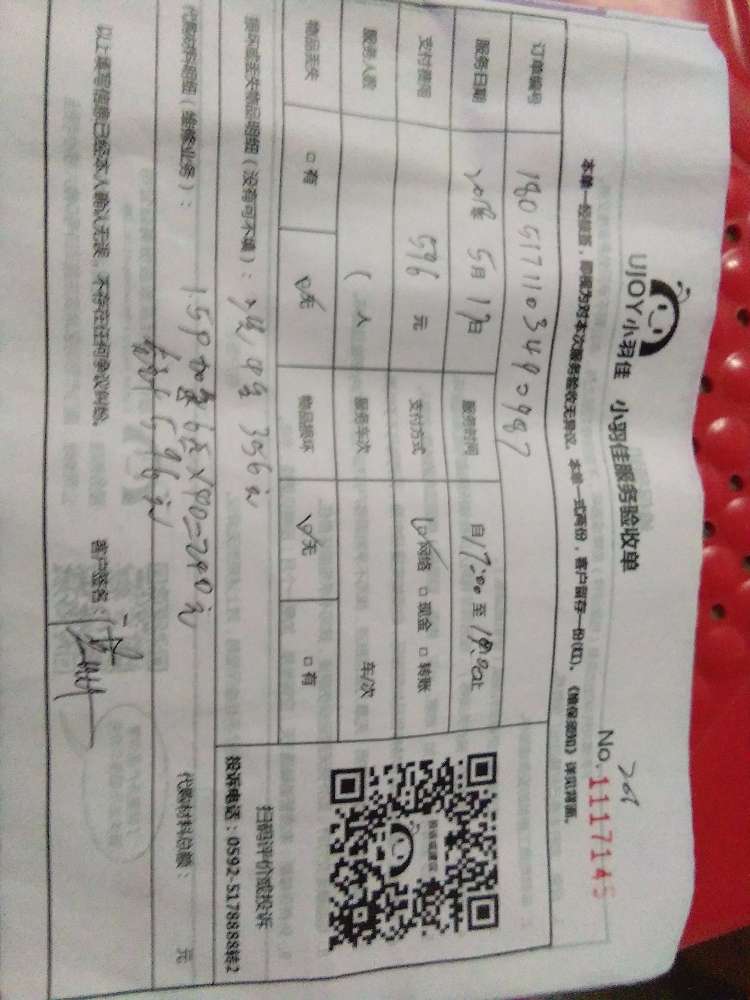 UJOY小羽佳 小羽佳服务验收单
No.1117145
本单一经签署，即视为对本次服务验收无异议。本单一式两份，客户留存一份(红)。《维保须知》详见背面。
订单编号
服务日期 2018年 5月17日 服务时间 自17:00至18:00止
支付费用 596 元 支付方式 网络 □现金 □转账
服务人数 人 服务车次 车/次
物品丢失 □有 无 物品损坏 无 □有
损坏或丢失物品明细（没有可不填）：
356元
代购材料明细（维修业务）： 代购材料总额： 元
1.5P 加氟6点×40=240元
596元
以上填写信息已经本人确认无误，不存在任何争议纠纷。 客户签名：
扫码评价或投诉
投诉电话：0592-5178888转2